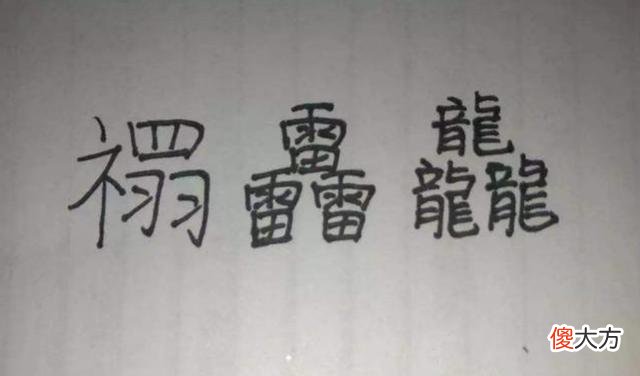 禤 靐 龘
傻大方